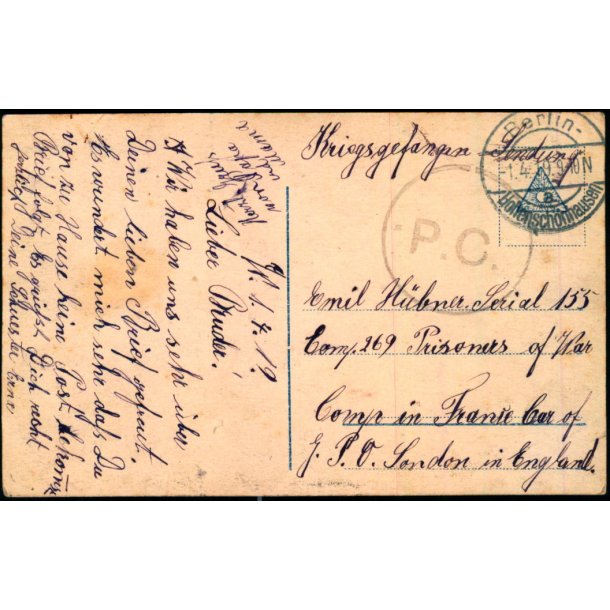 W. 1.4.19.
Lieber Bruder!
Wir haben uns sehr über
Deinen lieben Brief gefreut.
Es wundert mich sehr daß Du
von zu Hause keine Post bekomst
Brief folgt Es grüßt Dich recht
herzlich Deine Schwester Erna
Kriegsgefangen Sendung
Berlin-
-1.4.19 9-10N
a
Hohenschönhausen
P.C.
Emil Hübner Serial 155
Comp. 269 Prisoners of War
Comp in France Car of
G. P. O. London in England.